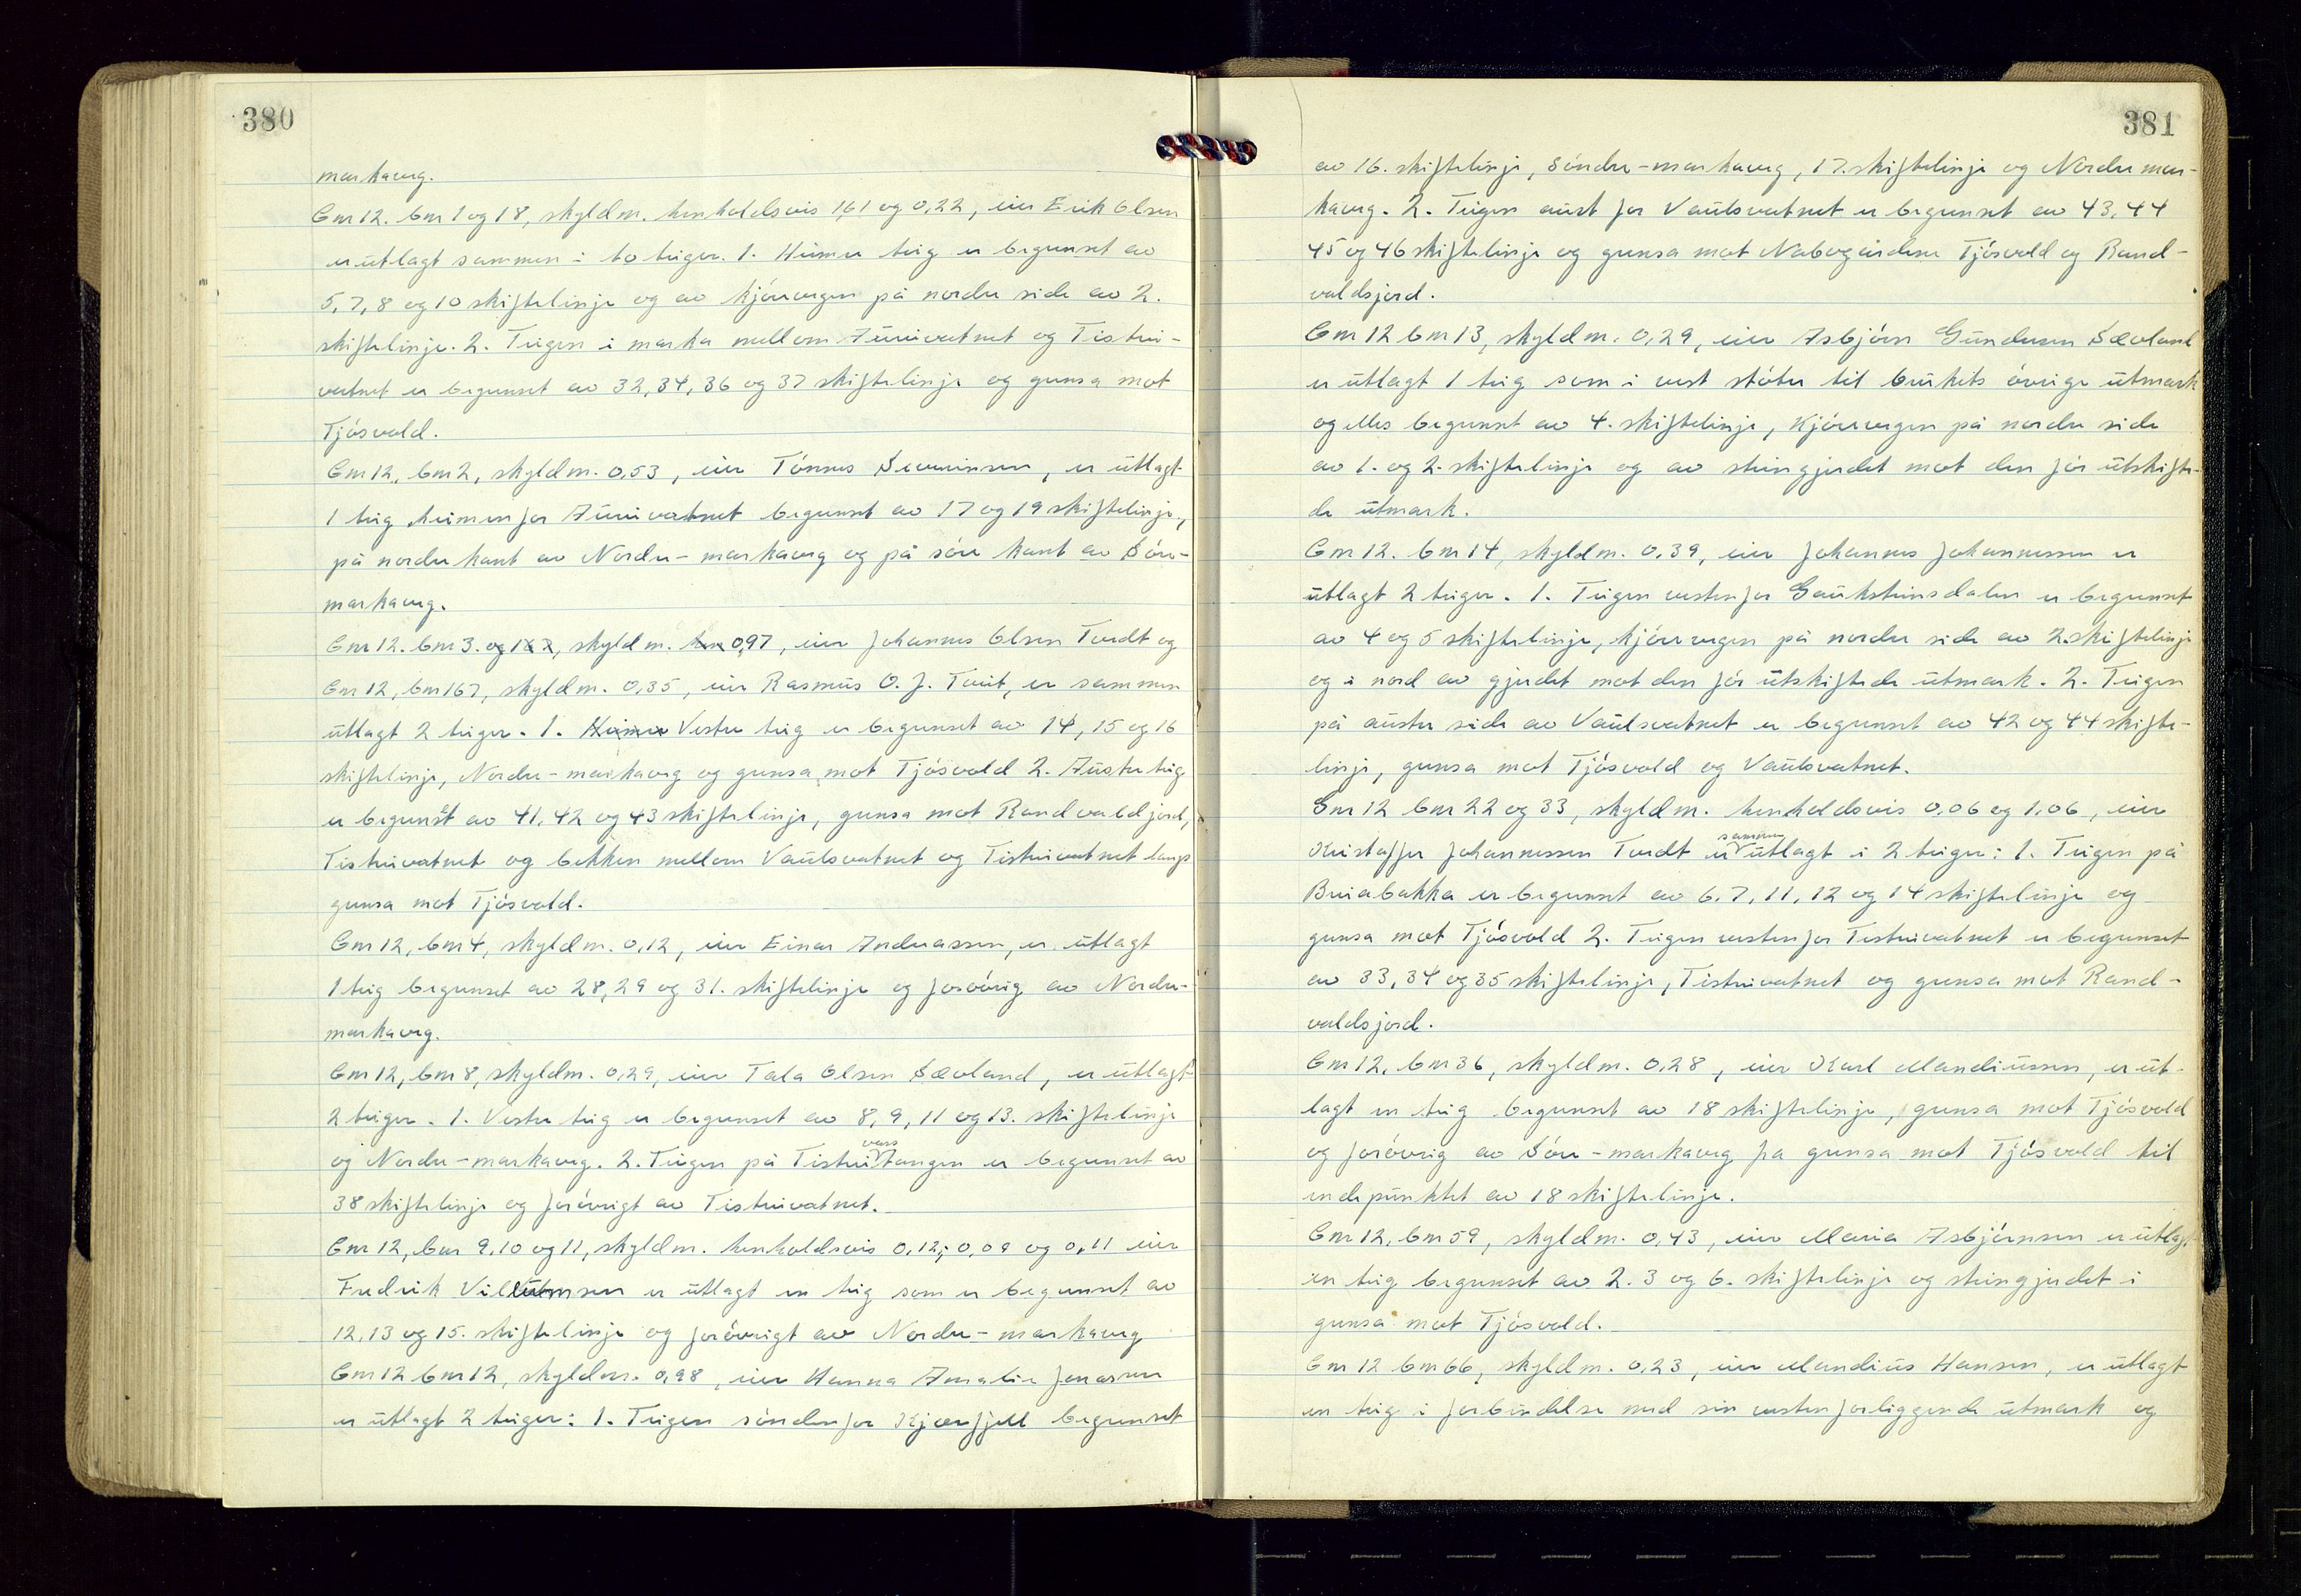 380
markaveg.
Gnr 12. bnr 1 og 18, skyld m. henholdsvis 1,61 og 0,22, eier Erik Olsen
er utlagt sammen i to teiger. 1. Heimre teig er begrenset av
5, 7, 8 og 10 skiftelinje og av kjørevegen på nordre side av 2.
skiftelinje. 2. Teigen i marka mellom Aureivatnet og Tistrei-
vatnet er begrenset av 32, 34, 36 og 37 skiftelinje og grensa mot
Tjøsvold.
Gnr 12, bnr 2, skyld m. 0,53, eier Tønnes Severinsen, er utlagt
1 teig heimenfor Aureivatnet begrenset av 17 og 19 skiftelinje,
på nordre kant av Nordre-markaveg og på søre kant av Søre-
markaveg.
Gnr 12. bnr 3. og 167, skyld m. 0,97, eier Johannes Olsen Tvedt og
Gnr 12, bnr 167, skyld m. 0,35, eier Rasmus O. J. Tveit, er sammen
utlagt 2 teiger. 1. Heimre Vestre teig er begrenset av 14, 15 og 16
skiftelinje, Nordre-markaveg og grensa mot Tjøsvold 2. Austre teig
er begrenset av 41, 42 og 43 skiftelinje, grensa mot Randvaldjord,
Tistreivatnet og bekken mellom Vaulsvatnet og Tistreivatnet langs
grensa mot Tjøsvold.
Gnr 12, bnr 4, skyld m. 0,12, eier Einar Andreassen, er utlagt
1 teig begrenset av 28, 29 og 31. skiftelinje og forøvrig av Nordre-
markaveg.
Gnr 12, bnr 8, skyld m. 0,29, eier Tala Olsen Sævland, er utlagt
2 teiger. 1. Vestre teig er begrenset av 8, 9, 11 og 13. skiftelinje
og Nordre-markaveg. 2. Teigen på Tistreivasstangen er begrenset av
38 skiftelinje og forøvrigt av Tistreivatnet.
Gnr 12, bnr 9, 10 og 11, skyld m. henholdsvis 0,12; 0,09 og 0,11 eier
Fredrik Villumsen er utlagt en teig som er begrenset av
12, 13 og 15. skiftelinje og forøvrigt av Nordre-markaveg
Gnr 12 bnr 12, skyld m. 0,98, eier Hanna Amalie Jonassen
er utlagt 2 teiger: 1. Teigen søndenfor Kjærfjell begrenset
381
av 16. skiftelinje, Søndre-markaveg, 17. skiftelinje og Nordre mar-
kaveg. 2. Teigen aust for Vaulsvatnet er begrenset av 43, 44
45 og 46 skiftelinje og grensa mot Nabogårdene Tjøsvold og Rand-
valdsjord.
Gnr 12 bnr 13, skyld m. 0,29, eier Asbjørn Gundersen Sævland
er utlagt 1 teig som i vest støter til brukets øvrige utmark
og elles begrenset av 4. skiftelinje, kjørevegen på nordre side
av 1. og 2. skiftelinje og av steingjerdet mot den før utskifte-
de utmark.
Gnr 12. bnr 14, skyld m. 0,39, eier Johannes Johannessen er
utlagt 2 teiger. 1. Teigen vestenfor Gauksteinsdalen er begrenset
av 4 og 5 skiftelinje, kjørevegen på nordre side av 2. skiftelinje
og i nord av gjerdet mot den før utskiftede utmark. 2. Teigen
på austre side av Vaulsvatnet er begrenset av 42 og 44 skifte-
linje, grensa mot Tjøsvold og Vaulsvatnet.
Gnr 12 bnr 22 og 33, skyld m. henholdsvis 0,06 og 1,06, eier
Kristoffer Johannessen Tvedt er sammen utlagt i 2 teiger: 1. Teigen på
Breiabakka er begrenset av 6, 7, 11, 12 og 14 skiftelinje og
grensa mot Tjøsvold 2. Teigen vestenfor Tistreivatnet er begrenset
av 33, 34 og 35 skiftelinje, Tistreivatnet og grensa mot Rand-
valdsjord.
Gnr 12, bnr 36, skyld m. 0,28, eier Karl Mandiussen, er ut-
lagt en teig begrenset av 18 skiftelinje, grensa mot Tjøsvold
og forøvrig av Søre-markaveg fra grensa mot Tjøsvold til
endepunktet av 18 skiftelinje.
Gnr 12, bnr 59, skyld m. 0,43, eier Maria Asbjørnsen er utlagt
en teig begrenset av 2. 3 og 6. skiftelinje og steingjerdet i
grensa mot Tjøsvold.
Gnr 12 bnr 66, skyld m. 0,23, eier Mandius Hansen, er utlagt
en teig i forbindelse med sin vestenforliggende utmark og